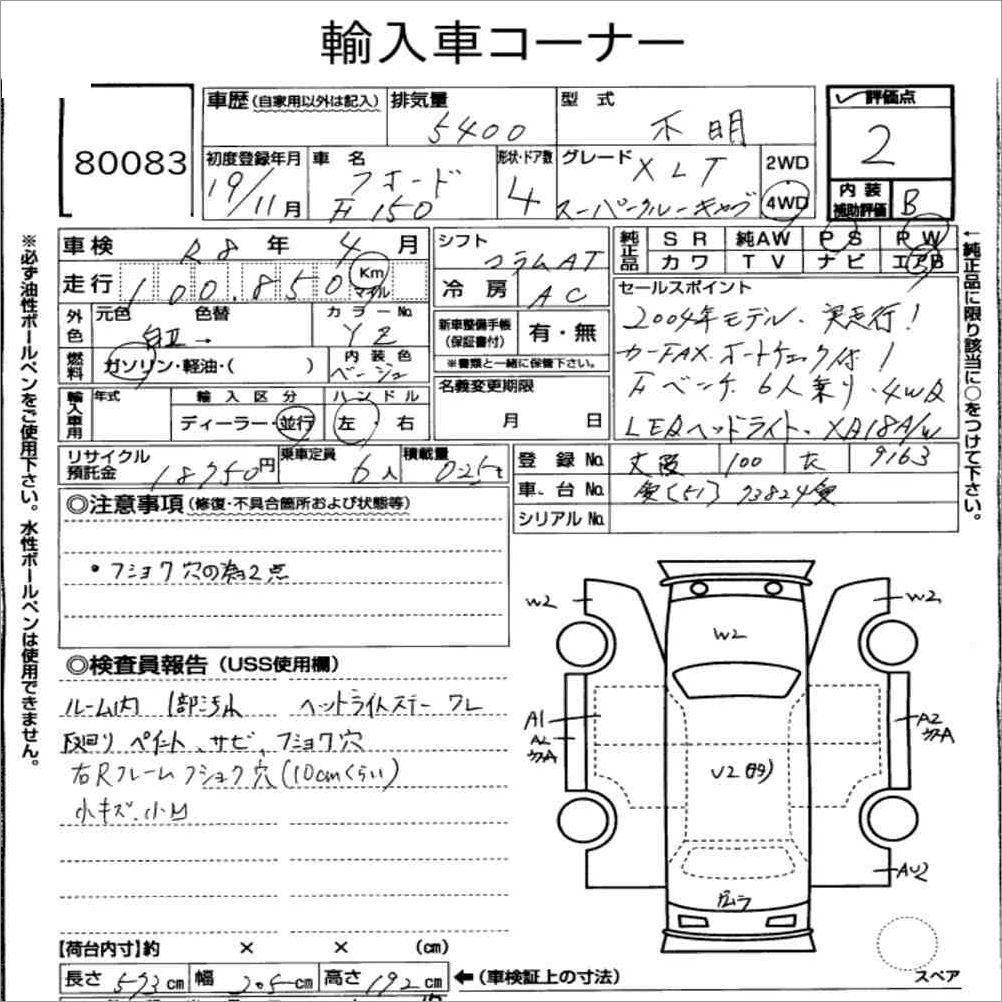 輸入車コーナー
80083
車歴 (自家用以外は記入) 排気量 5400 型式 不明
評価点 2
初度登録年月 19/11月 車名 フォード F150 形状・ドア数 4 グレード XLT スーパークルーキャブ 2WD 4WD
内装補助評価 B
車検 R8年 4月
走行 100.850 Km マイル
外色 元色 白Ⅱ→ 色替 カラーNo. YZ
燃料 ガソリン・軽油・( ) 内装色 ベージュ
輸入車用 年式 輸入区分 ディーラー・並行 ハンドル 左・右
シフト コラムAT
冷房 AC
新車整備手帳 (保証書付) 有・無
※書類と一緒に保管下さい。
名義変更期限
月 日
純正品 SR 純AW PS PW
カワ TV ナビ エアB
セールスポイント
2004年モデル、実走行!
カーFAX・オートチェック付!
Fベンチ 6人乗り・4WD
LEDヘッドライト、XD18A/W
リサイクル預託金 18750円 乗車定員 6人 積載量 025t
登録No. 大阪 100 9163
車台No. (51)73824
シリアルNo.
◎注意事項 (修復・不具合箇所および状態等)
・フショク穴の為2点
◎検査員報告 (USS使用欄)
ルーム内 1部汚れ ヘッドライトステー ワレ
下廻り ペイント、サビ、フショク穴
右Rフレームフショク穴(10cmくらい)
小キズ、小凹
W2
W2
W2
A1
A2
A2
U2
AU2
スペア
【荷台内寸】約 × × (cm)
長さ 593cm 幅 205cm 高さ 192cm ←(車検証上の寸法)
※必ず油性ボールペンをご使用下さい。水性ボールペンは使用できません。
←純正品に限り該当に○をつけて下さい。